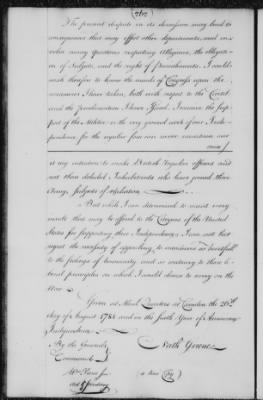 The present dispute in its discussion may lead to
consequences that may affect other departments, and involve
many questions respecting Allegiance, the
of Subjects, and the right of Punishments. I would
wish therefore to know the minds of Congress upon the
measures I have taken, both with regard to the Cartel
and the proclamation I have
of the Militia in the very ground work of our Independence
for the regular force are never
it my intention to make British Regular officers and
not their deluded Inhabitants who have joined their
Army, subjects of retaliation
But while I am determined to resist every
that may be offered to the Congress of the United
States for supporting their Independence, I am not that
regret the necessity of appealing to measures so hurtful
to the feelings of humanity and so contrary to the liberal
principles on which I would choose to carry on the
War
Given at Head Quarters at Camden the 26th
day of August 1781 and in the sixth Year of American
Independence
By the General's
Command
Wm Pierce Jun
Aid
Nath Greene
a true